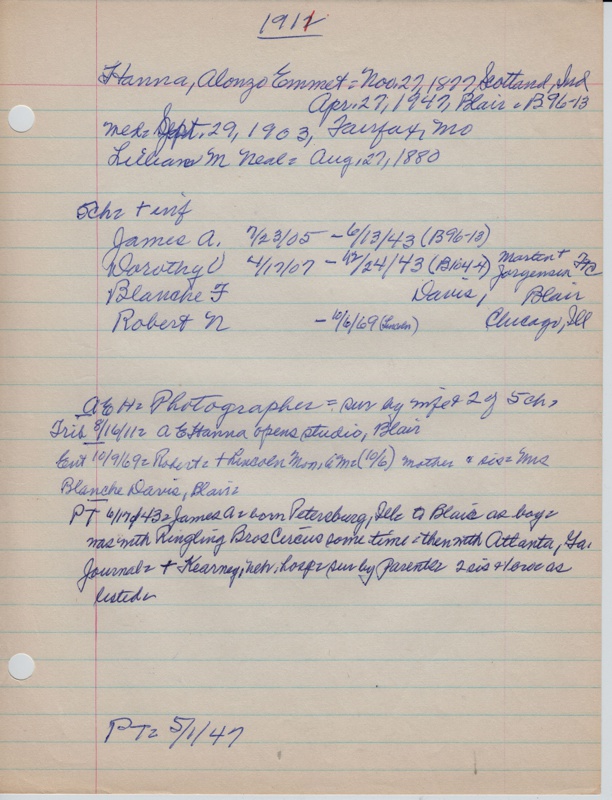 1911
Hanna, Alonzo Emmet = Nov. 27, 1877, Scotland, Ind
Apr. 27, 1947, Blair = B96-13
Med = Sept. 29, 1903, Fairfax, Mo
Lillian M Neal = Aug. 27, 1880
5ch = + inf
James A. 7/23/05 - 6/13/43 (B96-13)
Dorothy V 4/17/07 - 12/24/43 (B104-4) Martin + Jorgensen FC
Blanche F Davis, Blair
Robert N - 10/6/69 (Lincoln) Chicago, Ill
A E H = Photographer = sur by wife & 2 of 5 ch,
Trib 8/16/11 = A E Hanna opens studio, Blair
Ent 10/9/69 = Robert = + Lincoln Mon, (10/6) mother & sis = Mrs
Blanche Davis, Blair =
PT 6/17/43 = James A = born Petersburg, Ill = to Blair as boy =
was with Ringling Bros Circus some time = then with Atlanta, Ga.
Journal = + Kearney, Neb. hosp = sur by Parents 2 sis & 1 bro as
listed =
PT = 5/1/47